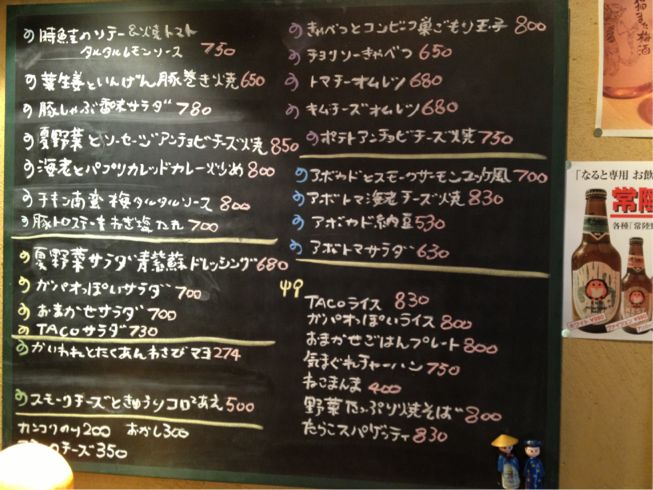 の 時鮭のソテー&焼トマト
タルタルレモンソース 750
の 葉生姜といんげん豚巻き焼 650
の 豚しゃぶ香味サラダ 780
の 夏野菜とソーセージアンチョビチーズ焼 850
の 海老とパプリカレッドカレー炒め 800
の チキン南蛮 梅タルタルソース 800
の 豚トロステーキねぎ塩だれ 700
の 夏野菜サラダ青紫蘇ドレッシング 680
の ガパオっぽいサラダ 700
の おまかせサラダ 700
の TACOサラダ 730
の かいわれとたくあんわさびマヨ 274
の スモークチーズときゅうりコロコロあえ 500
カンコリのり 200 おかし 300
チーズ 350
の きゃべつとコンビーフ巣ごもり玉子 800
の チョリソーきゃべつ 650
の トマチーオムレツ 680
の キムチーズオムレツ 680
の ポテトアンチョビチーズ焼 750
の アボカドとスモークサーモンユッケ風 700
の アボトマ海老チーズ焼 830
の アボカド納豆 530
の アボトマサラダ 630
TACOライス 830
ガパオっぽいライス 800
おまかせごはんプレート 800
気まぐれチャーハン 750
ねこまんま 400
野菜たっぷり焼そば 800
たらこスパゲッティ 830
梅酒
「なると専用 お飲
常陸
各種「常陸